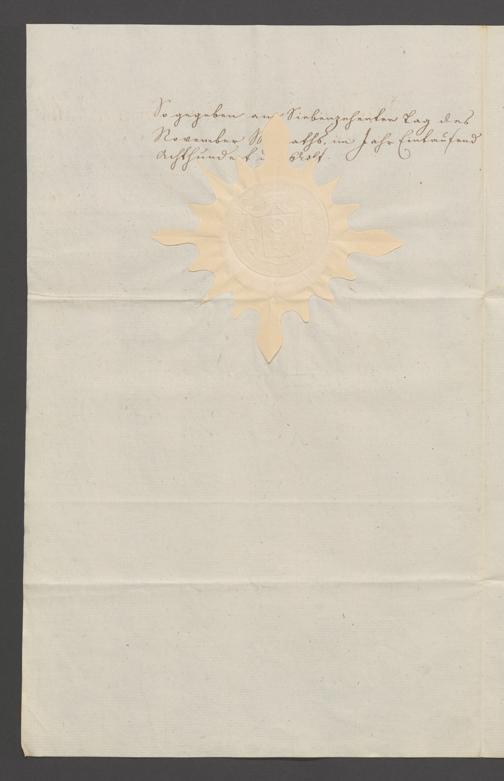 So gegeben am Siebenzehenten Tag des
November Monaths, im Jahr Eintausend
Achthundert u Eilf.